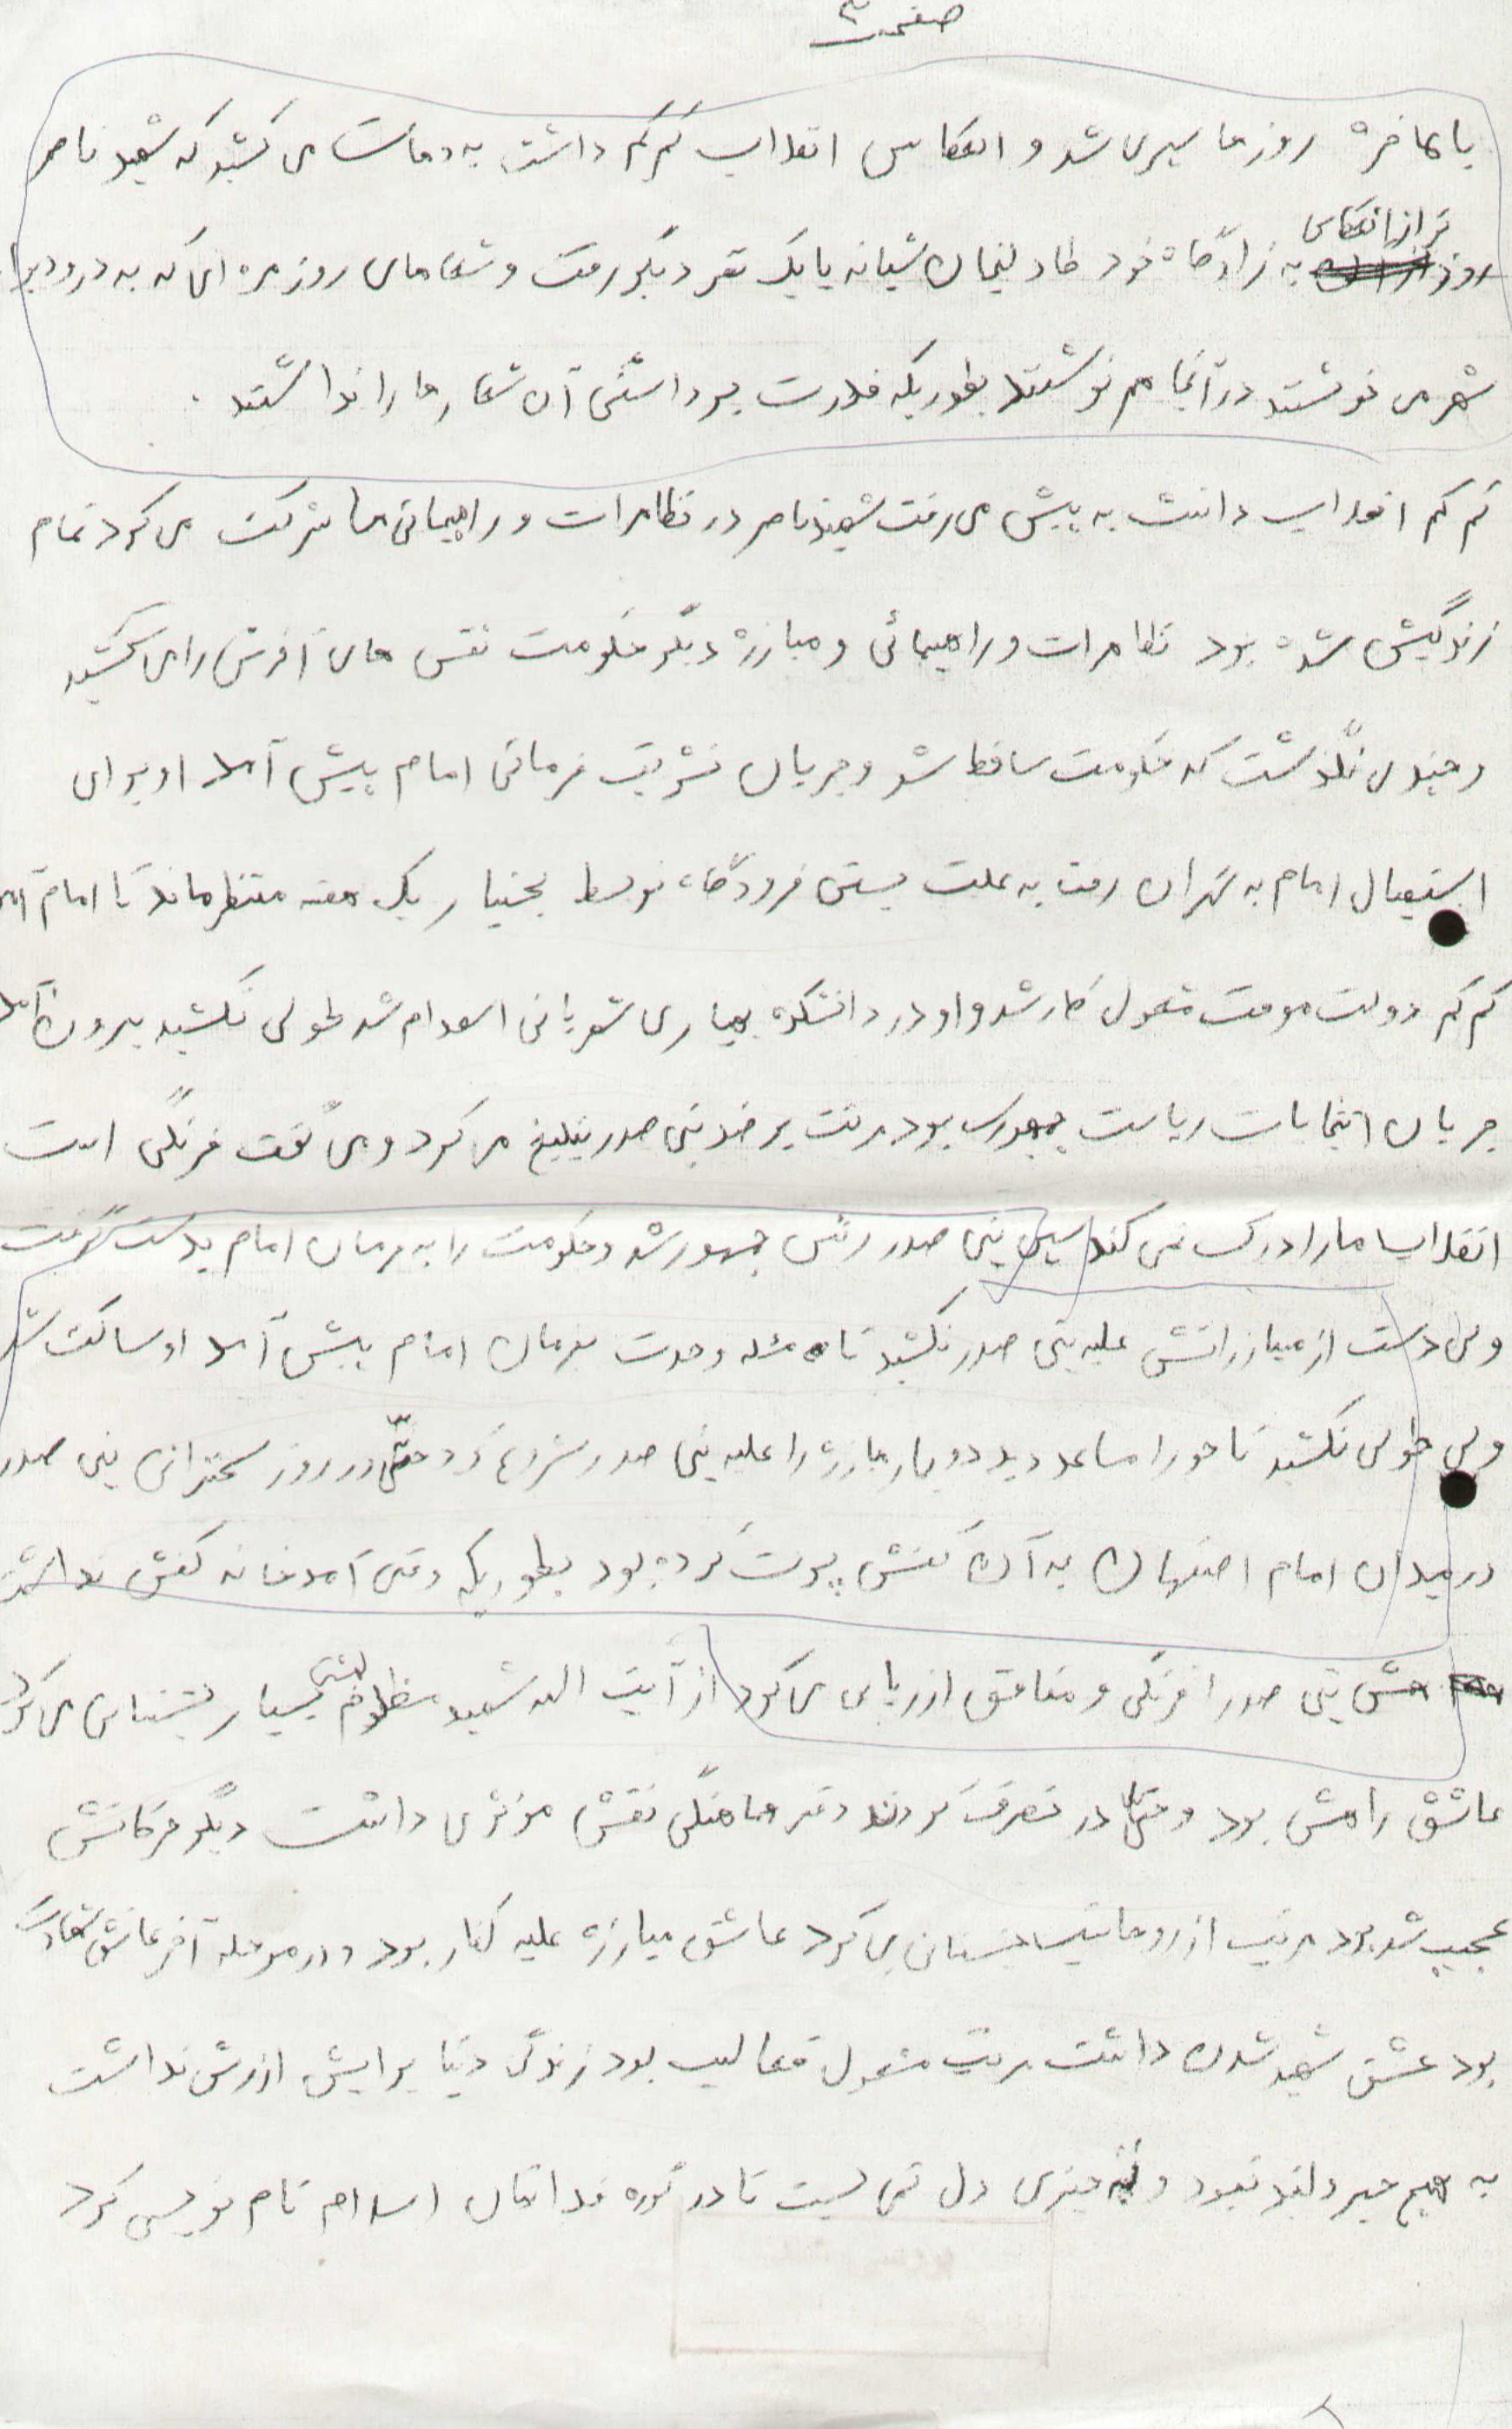 صفحه ۳
بالاخره روزها سپری شد و انعکاس انقلاب کم کم داشت به دهات می کشید که شهید ناصر
روز به زادگاه خود شبانه با یک نفر دیگر رفت و شعارهای روزمره ای که به در و دیوار
تر از انعکاس
شهر می نوشتند در آنجا هم نوشتند بطوریکه قدرت برداشتن آن شعارها را نداشتند .
کم کم انقلاب داشت به پیش می رفت شهید ناصر در تظاهرات و راهپیمائی ها شرکت می کرد تمام
زندگیش شده بود تظاهرات و راهپیمائی و مبارزه دیگر حکومت نفس های آخرش را می کشید
و چندی نگذشت که حکومت ساقط شد و جریان تشریف فرمائی امام پیش آمد او برای
استقبال امام به تهران رفت به علت بستن فرودگاه توسط بختیار یک هفته منتظر ماند تا امام آمد
کم کم دولت موقت مشغول کار شد و او در دانشکده شهربانی استخدام شد طولی نکشید بیرون آمد
جریان انتخابات ریاست جمهوری بود مرتب بر ضد بنی صدر تبلیغ می کرد و می گفت فرنگی است
انقلاب ما را درک نمی کند سپس بنی صدر رئیس جمهور شد و حکومت را به فرمان امام بدست گرفت
ولی دست از مبارزاتش علیه بنی صدر نکشید تا مسئله وحدت بفرمان امام پیش آمد او ساکت شد
ولی طولی نکشید تا جو را مساعد دید دوباره مبارزه را علیه بنی صدر شروع کرد حتی در روز سخنرانی بنی صدر
در میدان امام اصفهان به آن کفش پرت کرده بود بطوریکه وقتی آمد خانه کفش نداشت
بنی صدر را فرنگی و منافق ارزیابی می کرد از آیت الله شهید مظلوم بهشتی بسیار پشتیبانی می کرد
عاشق راهش بود و حتی در تصرف کردن دفتر هماهنگی نقش موثری داشت دیگر حرکاتش
عجیب شد بود مرتب از روحانیت پشتیبانی می کرد عاشق مبارزه علیه کفار بود و در مرحله آخر عاشق شهادت
بود عشق شهید شدن داشت مرتب مشغول فعالیت بود زندگی دنیا برایش ارزش نداشت
به هیچ چیز دلبند نبود و به چیزی دل نمی بست تا در گروه فدائیان اسلام نام نویسی کرد